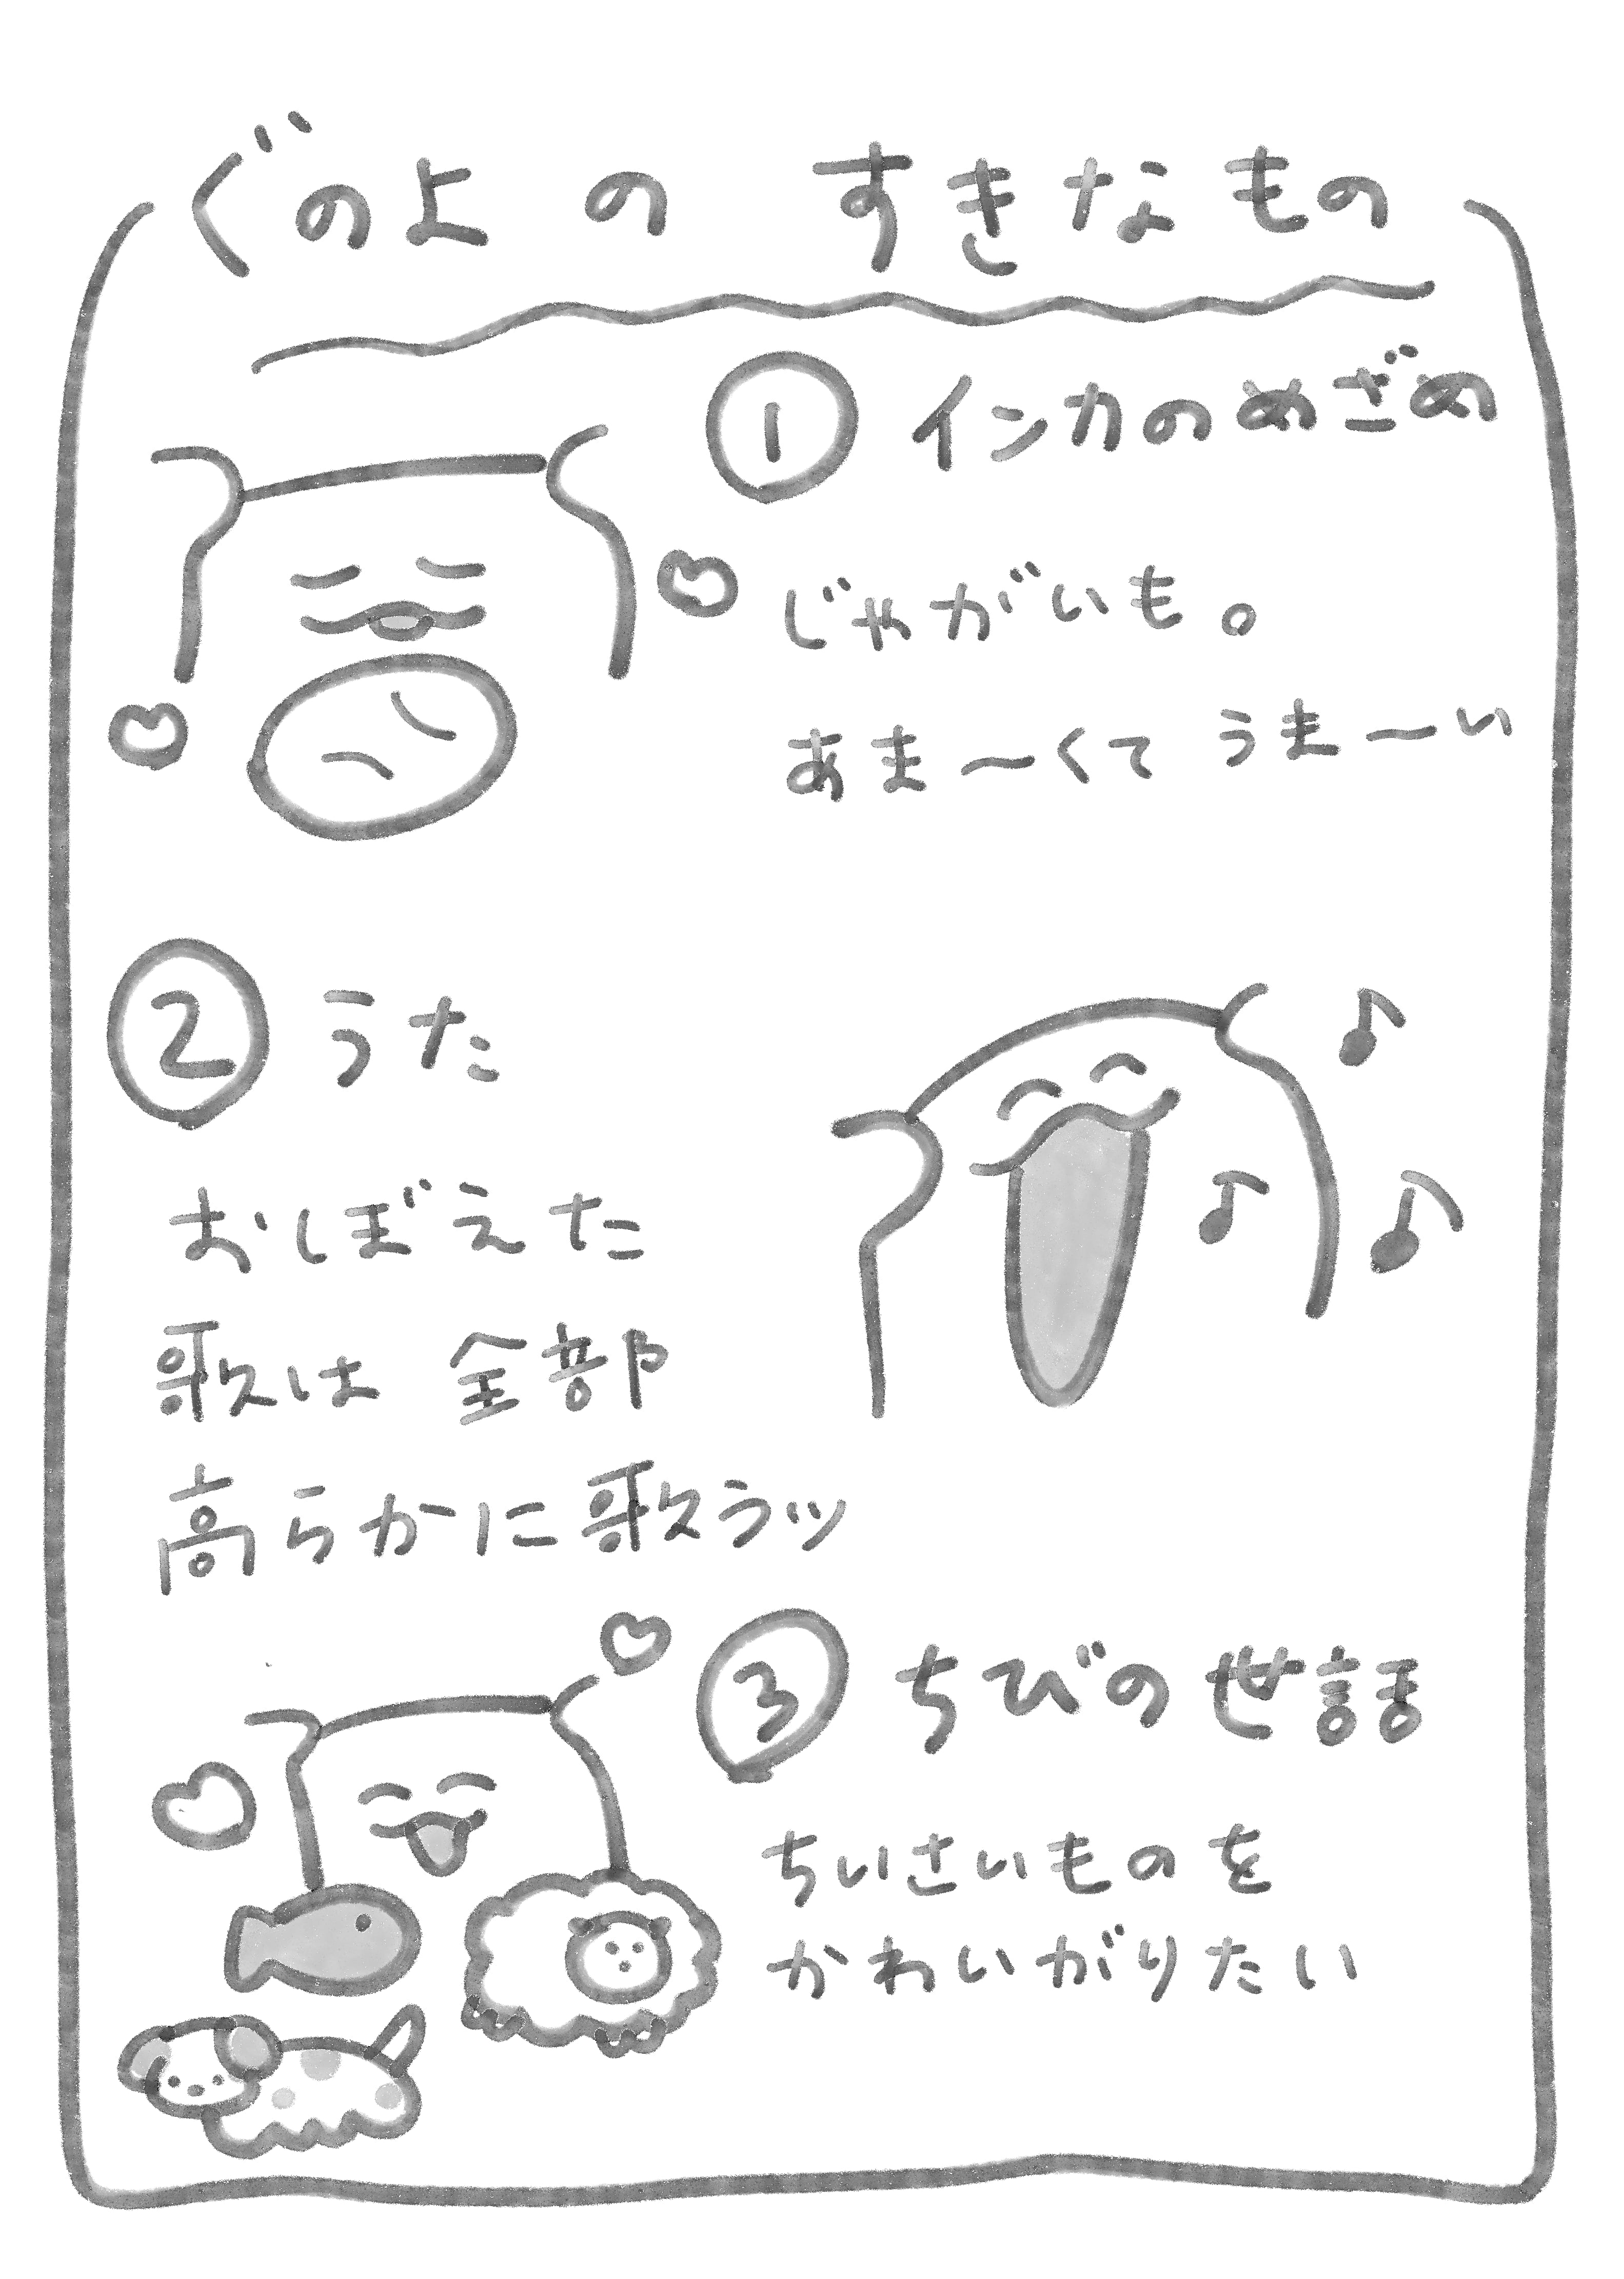 ぐのよ の すきなもの
① インカのめざめ
じゃがいも。
あま〜くて うま〜い
② うた
おしぼえた
歌は 全部
高らかに歌うッ
③ ちびの世話
ちいさいものを
かわいがりたい